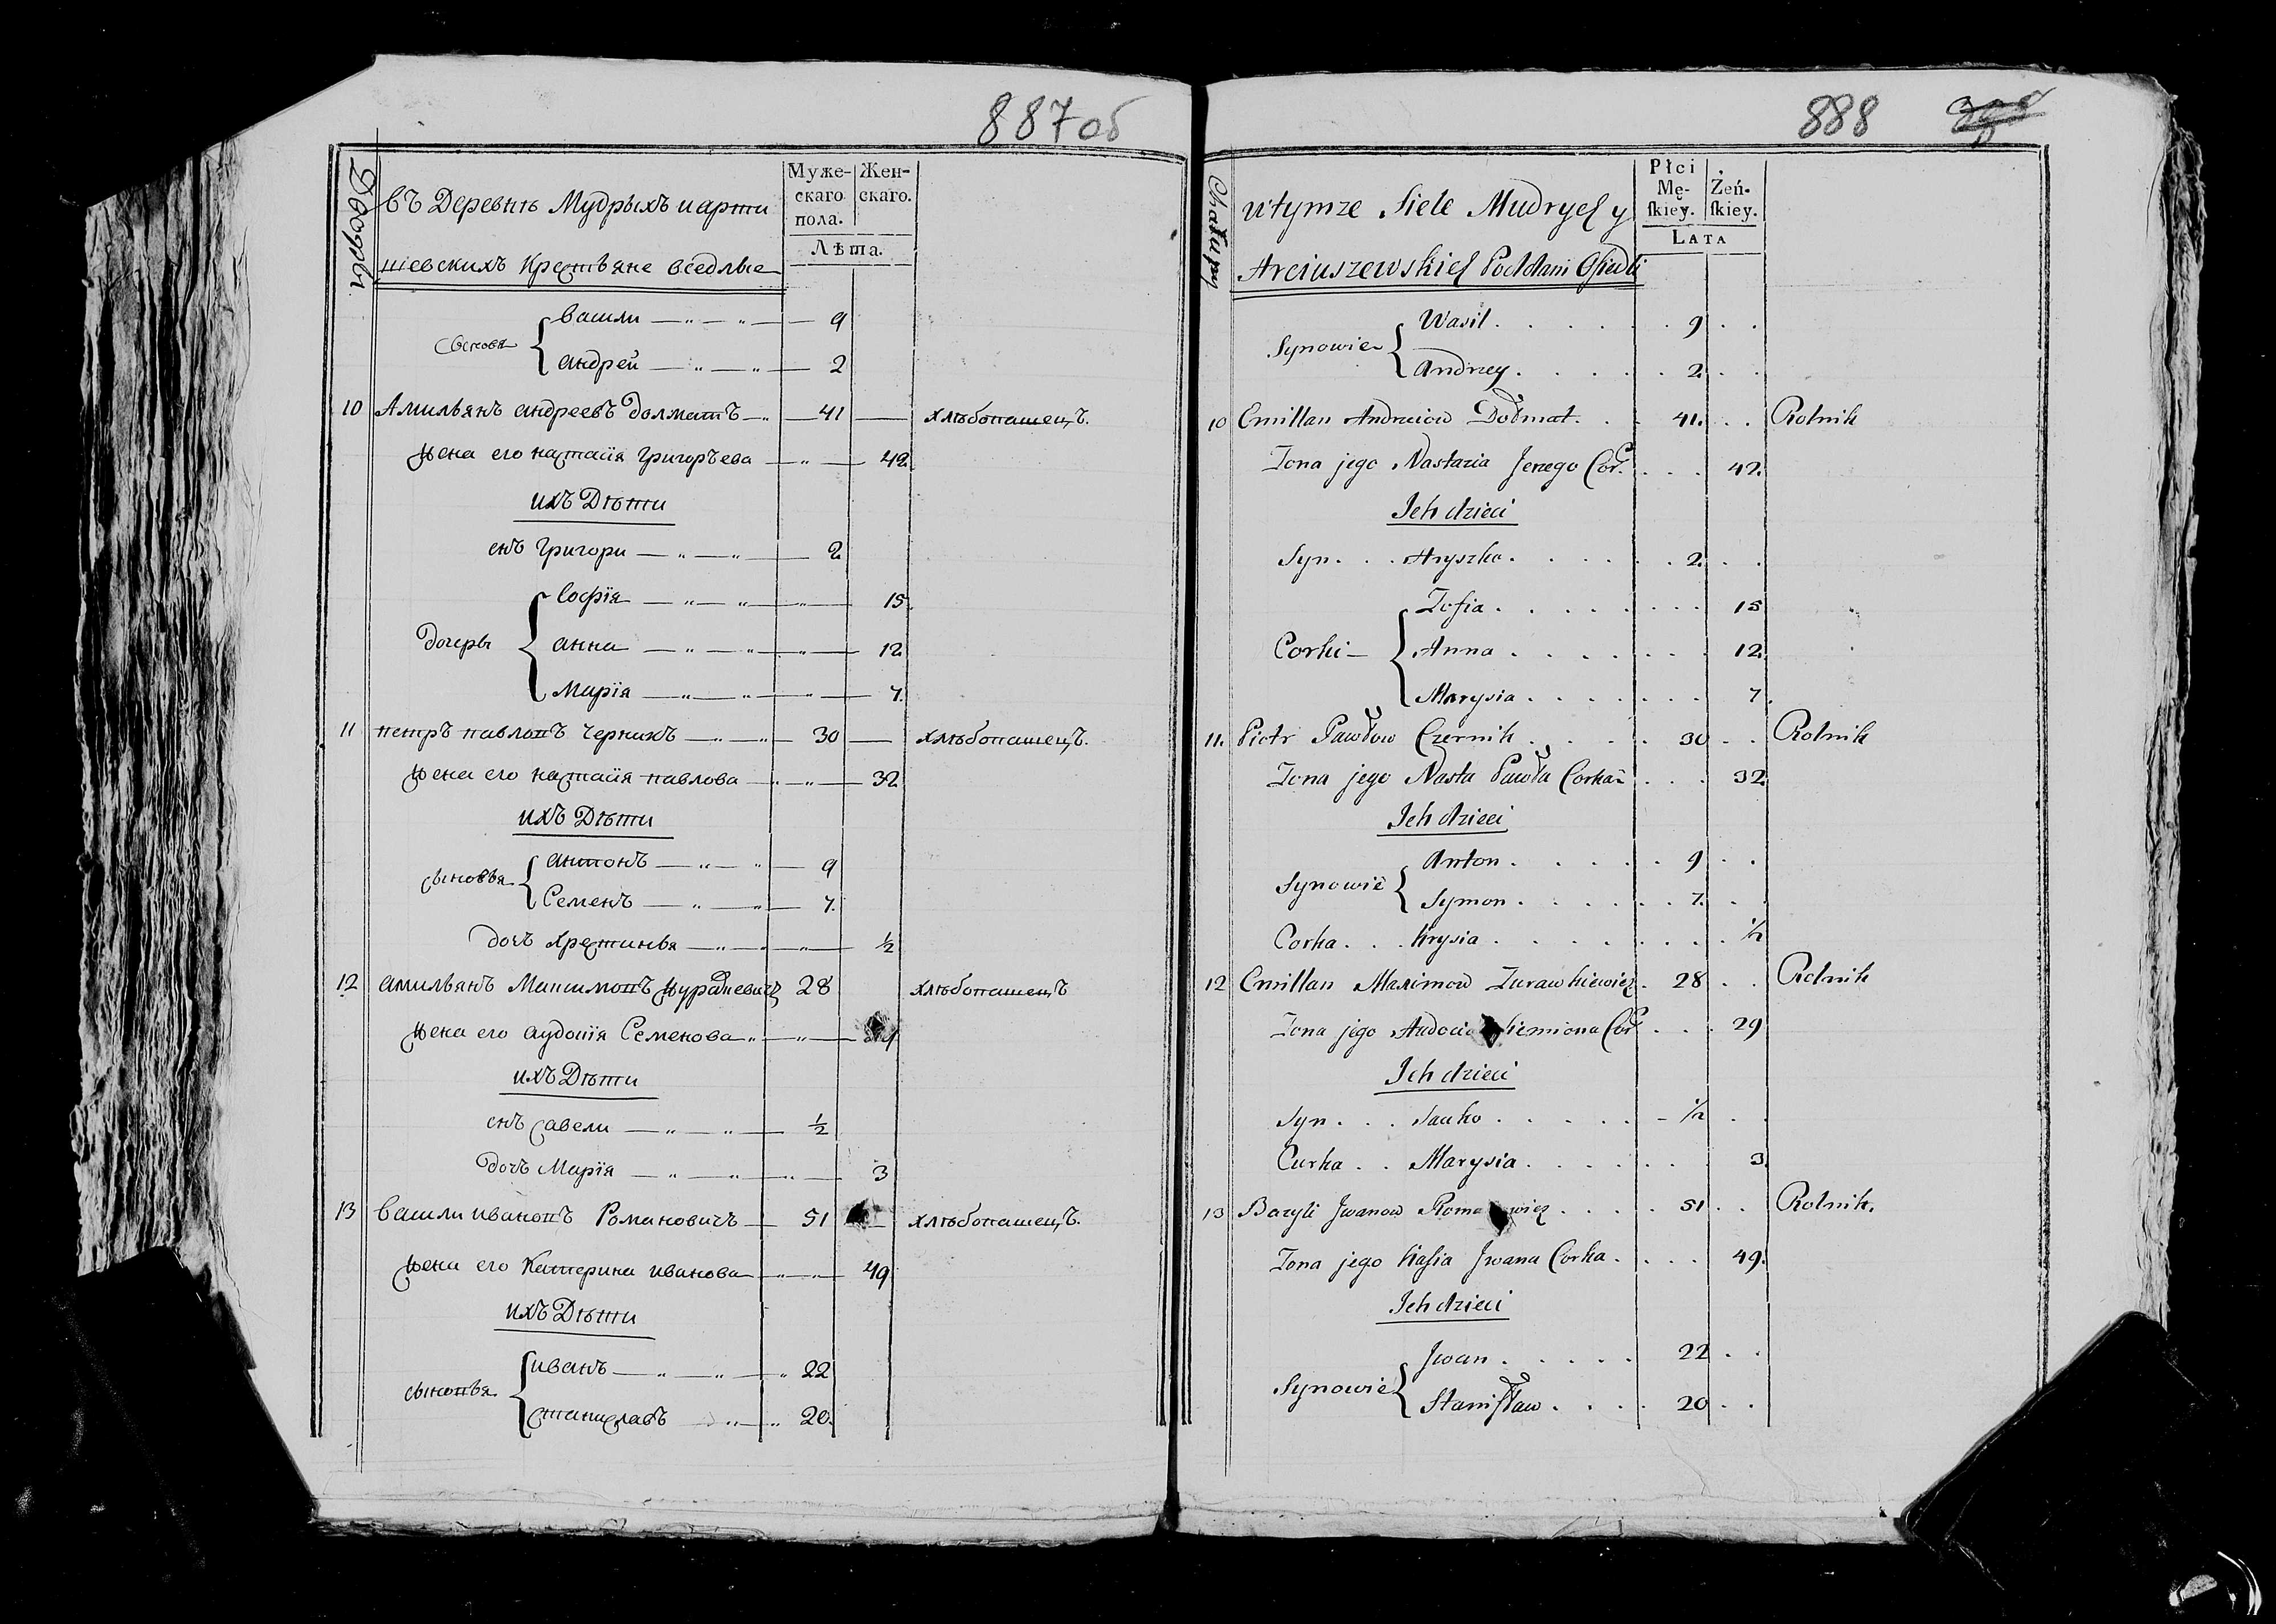 887об
Дворы
въ Деревнѣ Мудрыхъ иарти
шевскихъ Крестьяне вседлые
Муже-
скаго
пола.
Жен-
скаго.
Лѣта.
Сынова { Васили — „ — „ — 9
андрей — „ — „ — 2
10 Амильянъ андреевъ долматъ — „ — 41 — хлѣбопашецъ.
жена его настасїя григорьева — „ — 42
ихъ Дѣти
снъ григори — „ — „ — 2
дочеры { Софїя — „ — „ — „ — 15
анна — „ — „ — „ — 12
Марїя — „ — „ — „ — 7.
11 петръ павловъ черникъ — „ — „ — 30 — хлѣбопашецъ.
жена его настасїя павлова — „ — „ — 32
ихъ Дѣти
сыновья { антонъ — „ — „ — 9
Семенъ — „ — „ — 7.
дочъ хрестинья — „ — „ — ½
12 амильянъ Максимовъ журавкевичъ 28 хлѣбопашецъ
жена его аудотїя Семенова „ — „ —
ихъ Дѣти
снъ савели — „ — „ — ½
дочъ Марїя — „ — „ — „ — 3
13 Васили ивановъ Романовичъ — 51 — хлѣбопашецъ.
жена его Катерина иванова — „ — „ — 49
ихъ Дѣти
сыновья { иванъ — „ — „ — „ 22
станиславъ „ — „ 20.
888
Chałupy
wtymze Siele Mudrych y
Arciuszewskich Poddani Osiedli
Płci
Mę-
ſkiey.
Żeń-
ſkiey.
LATA
Synowie { Wasil . . . . . . 9 . .
Andrzey . . . . . . 2 . .
10 Emillan Andreiow Dołmat. . . 41. . . Rolnik
Zona jego Nastazia Jerzego Cor. . . . 42.
Ich dzieci
Syn. . . Hryszko. . . . . . 2 . .
Corki — { Zofia . . . . . . . . 15
Anna . . . . . . . 12
Marysia . . . . . . . 7.
11. Piotr Pawłow Czernik . . . . 30 . . Rolnik
Zona jego Nasta Pawła Corka . . . 32.
Ich dzieci
Synowie { Anton . . . . . . 9 . .
Symon . . . . . . 7. . .
Corka. . . Krysia . . . . . . . . ½
12 Emillan Maximow Zurawkiewicz. 28 . . Rolnik
Zona jego Audocia Siemiona Cor . . . 29
Ich dzieci
Syn. . . Sauko . . . . . - ½ . .
Curka . . Marysia . . . . . . . 3.
13 Bazyli Jwanow . . . . 51 . . Rolnik.
Zona jego Kasia Jwana Corka . . . . 49.
Ich dzieci
Synowie { Jwan . . . . . 22 . .
Staniſław . . . . 20 . .